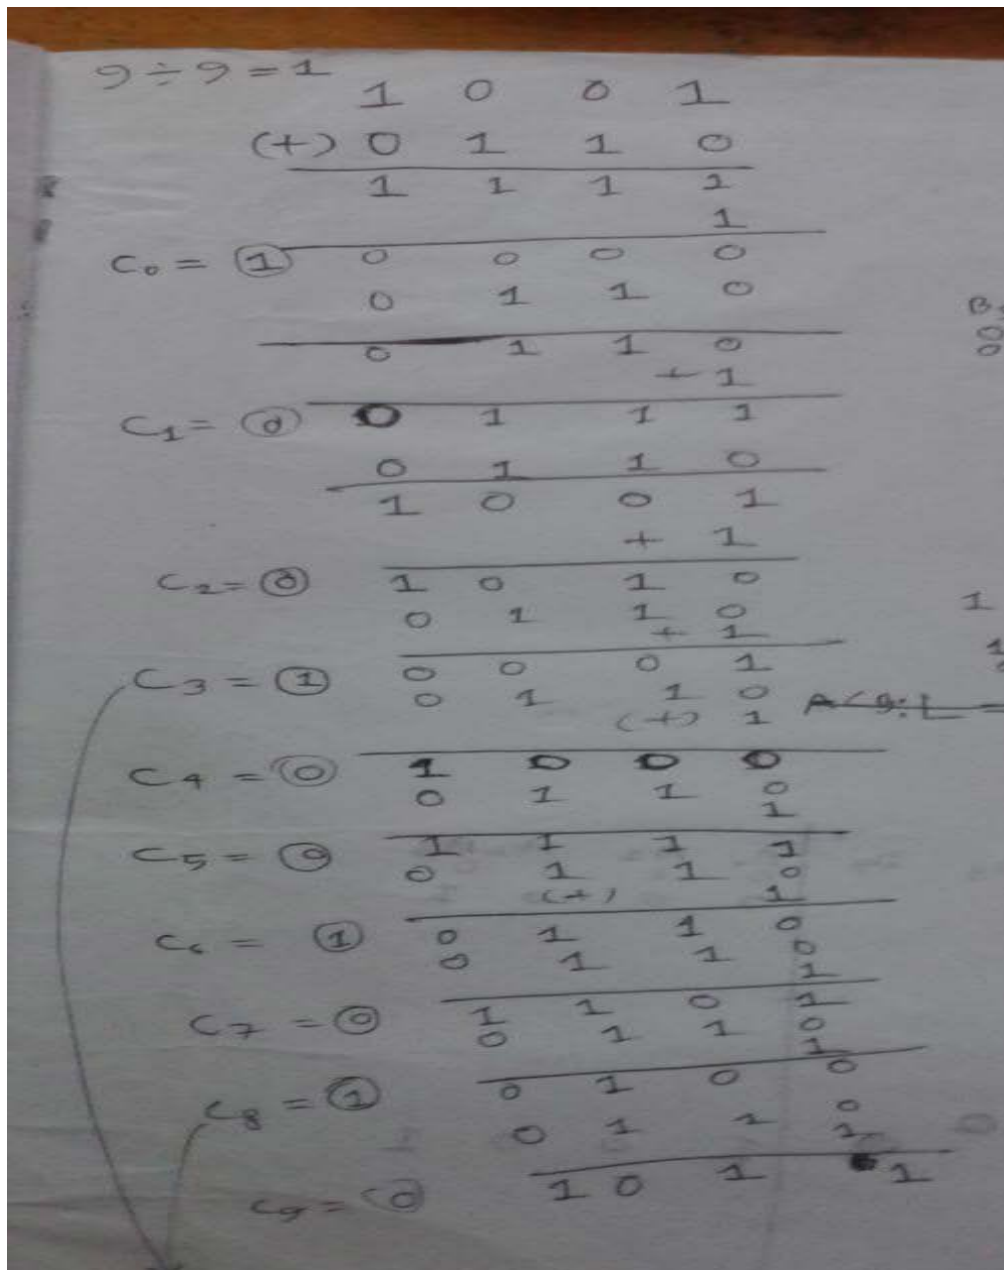 9 ÷ 9 = 1
1 0 0 1
(+) 0 1 1 0
1 1 1 1
1
C₀ = 1 0 0 0 0
0 1 1 0
0 1 1 0
+ 1
C₁ = 0 0 1 1 1
0 1 1 0
1 0 0 1
+ 1
C₂ = 0 1 0 1 0
0 1 1 0
+ 1
C₃ = 1 0 0 0 1
0 1 1 0
(+) 1
A<9:L =
C₄ = 0 1 0 0 0
0 1 1 0
1
C₅ = 0 1 1 1 1
0 1 1 0
(+) 1
C₆ = 1 0 1 1 0
0 1 1 0
1
C₇ = 0 1 1 0 1
0 1 1 0
1
C₈ = 1 0 1 0 0
0 1 1 0
1
C₉ = 0 1 0 1 1